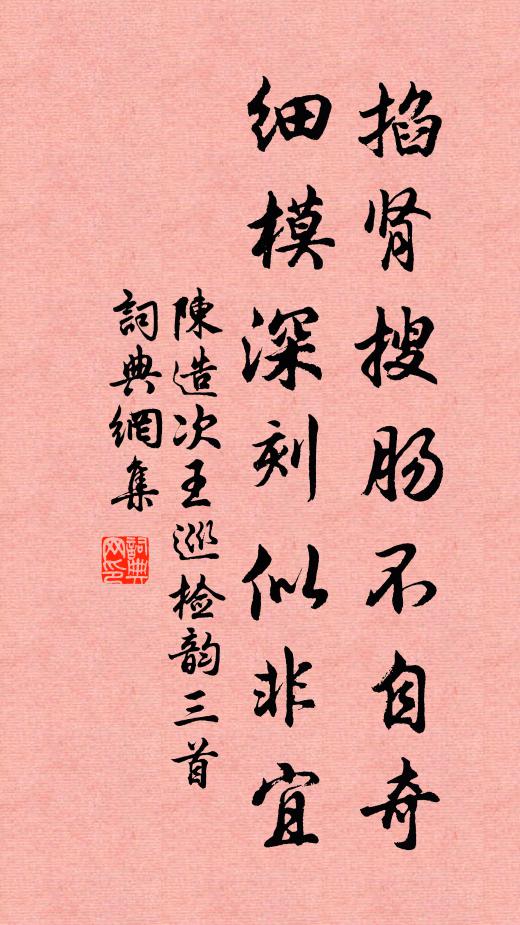 掐肾搜肠不自奇
细模深刻似非宜
陳造次王巡检韵三首
詞典網集
詞典網印